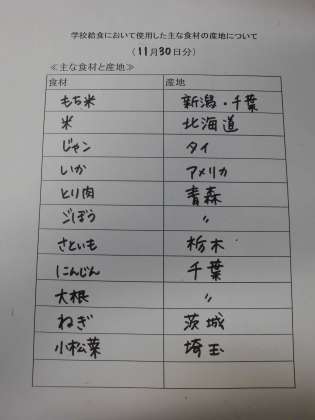 学校給食において使用した主な食材の産地について
(11月30日分)
≪主な食材と産地≫
食材 産地
もち米 新潟・千葉
米 北海道
じャン タイ
いか アメリカ
とり肉 青森
ごぼう 〃
さといも 栃木
にんじん 千葉
大根 〃
ねぎ 茨城
小松菜 埼玉